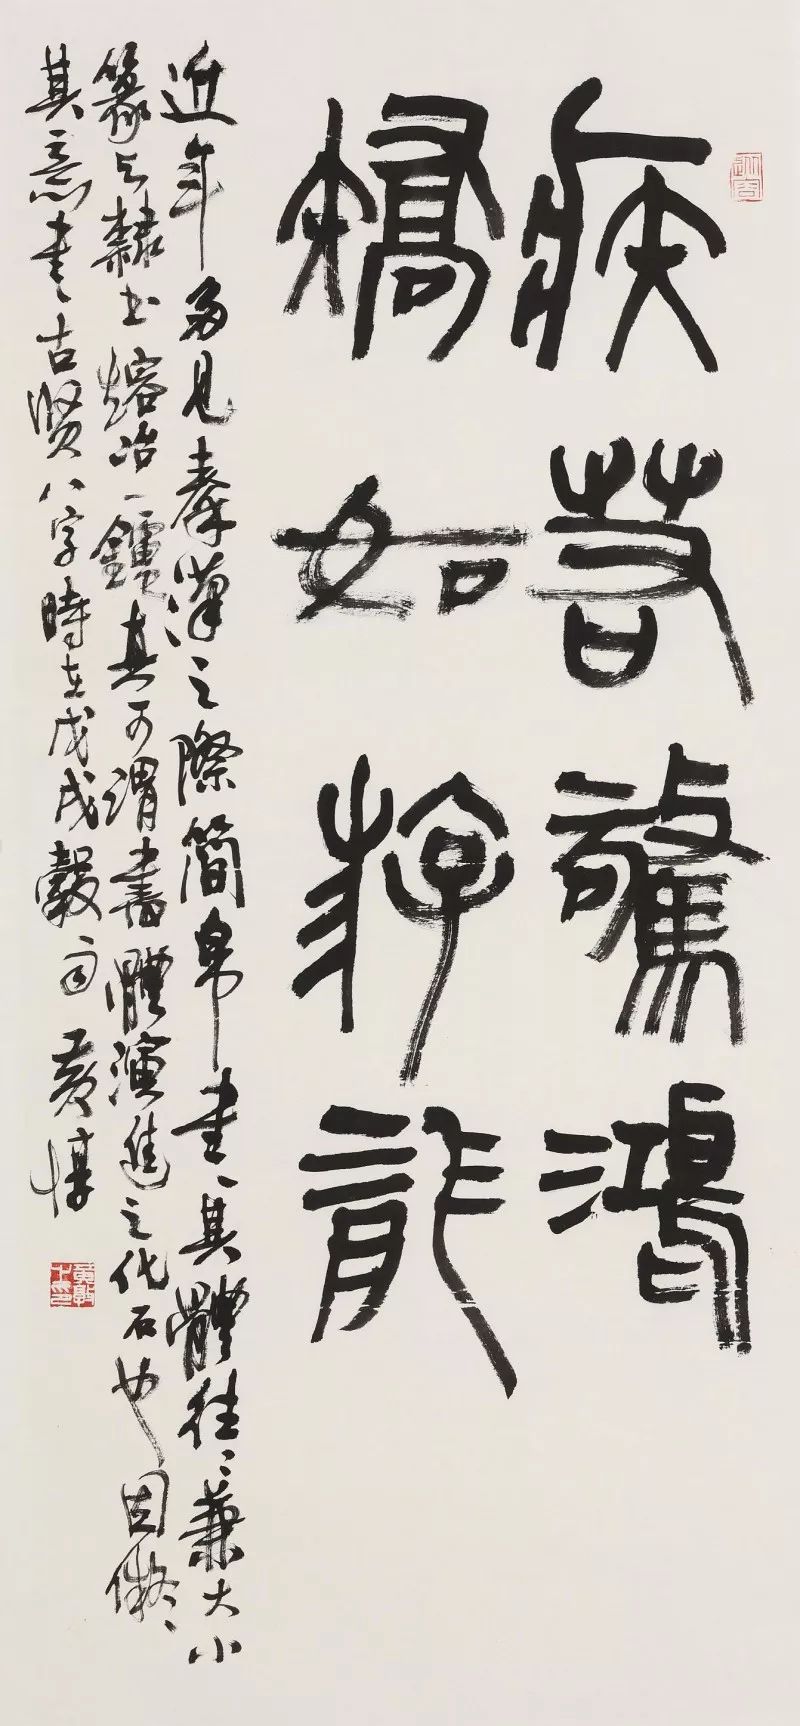 疾若驚鴻
矯如斿龍
近年多見秦漢之際簡帛書其體往往兼大小
篆与隸書熔冶一鑪其可謂書體演進之化石也因擬
其意書古賢八字時在戊戌穀雨黃惇